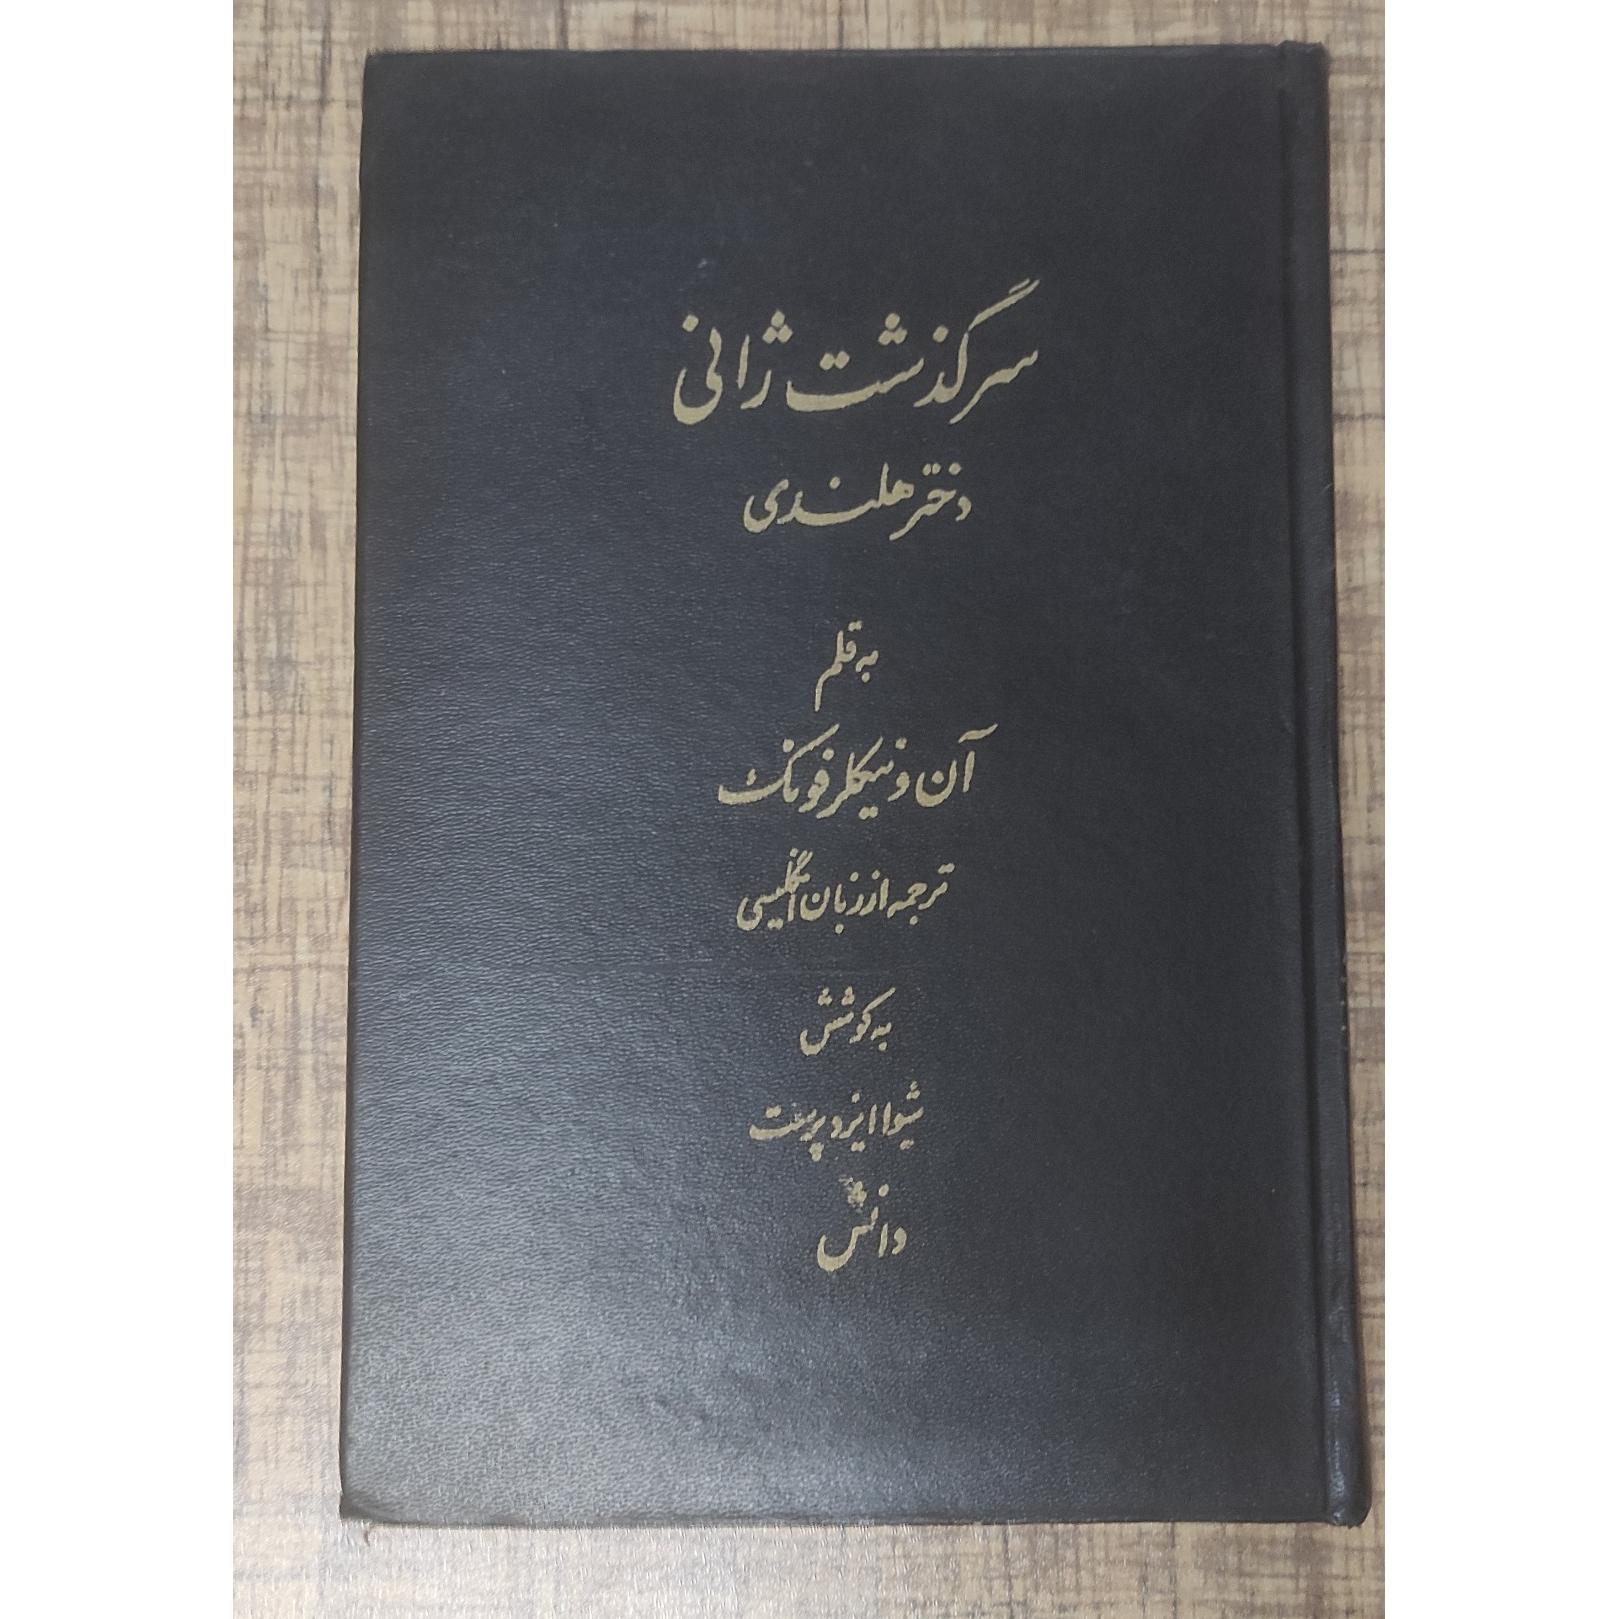 سرگذشت ژانی
دختر هلندی
به قلم
آن ونیکلر فونک
ترجمه از زبان انگلیسی
به کوشش
شیوا ایزدپرست
دانش